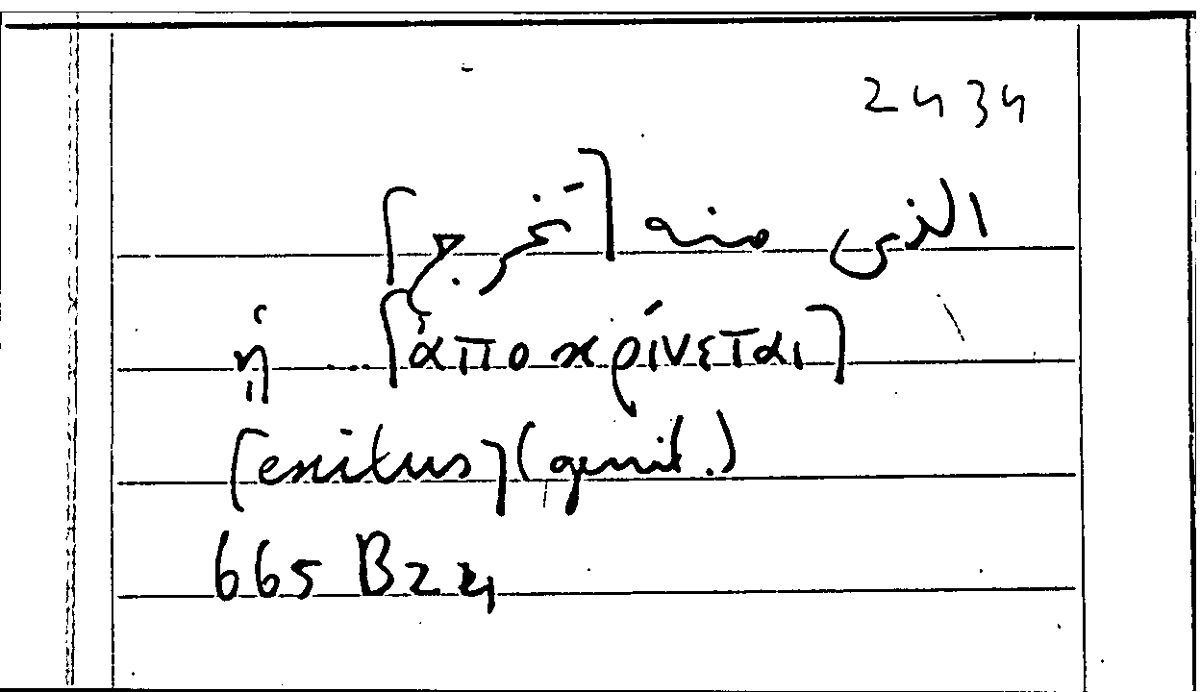 2434
الذى منه [تخرج]
ἡ ... [ἀποκρίνεται]
[exitus] (genit.)
665 B 24